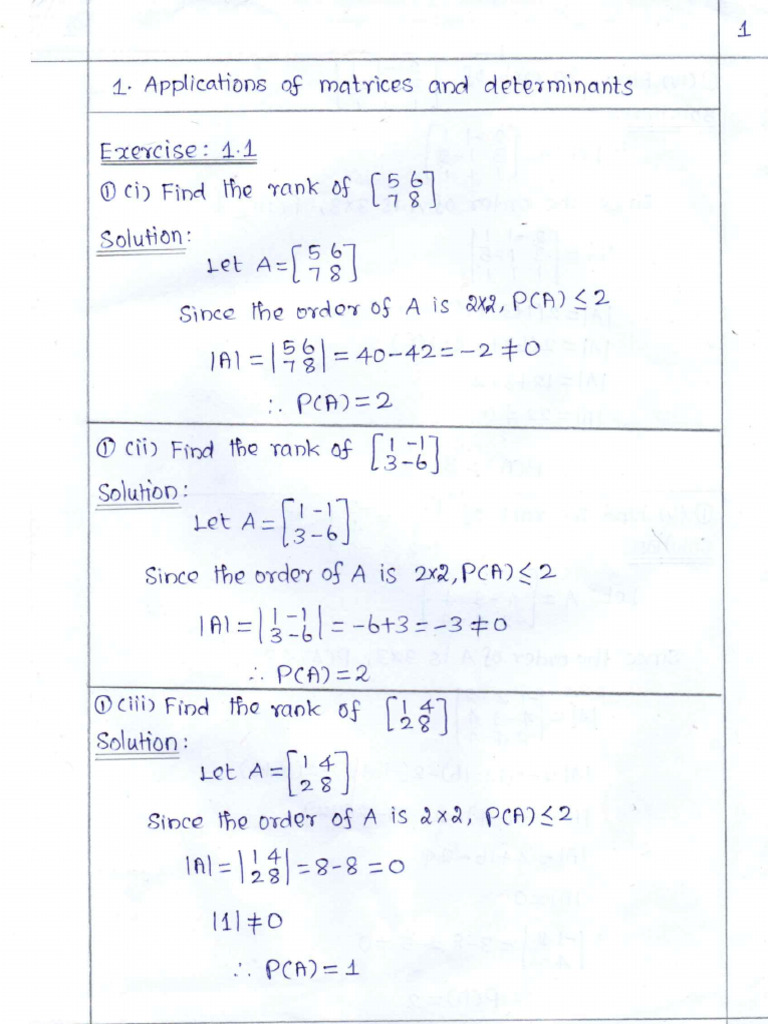 1
1. Applications of matrices and determinants
Exercise: 1.1
① (i) Find the rank of [5 6
7 8]
Solution:
Let A = [5 6
7 8]
Since the order of A is 2x2, P(A) ≤ 2
|A| = |5 6
7 8| = 40-42 = -2 ≠ 0
∴ P(A) = 2
① (ii) Find the rank of [1 -1
3 -6]
Solution:
Let A = [1 -1
3 -6]
Since the order of A is 2x2, P(A) ≤ 2
|A| = |1 -1
3 -6| = -6+3 = -3 ≠ 0
∴ P(A) = 2
① (iii) Find the rank of [1 4
2 8]
Solution:
Let A = [1 4
2 8]
Since the order of A is 2x2, P(A) ≤ 2
|A| = |1 4
2 8| = 8-8 = 0
|1| ≠ 0
∴ P(A) = 1